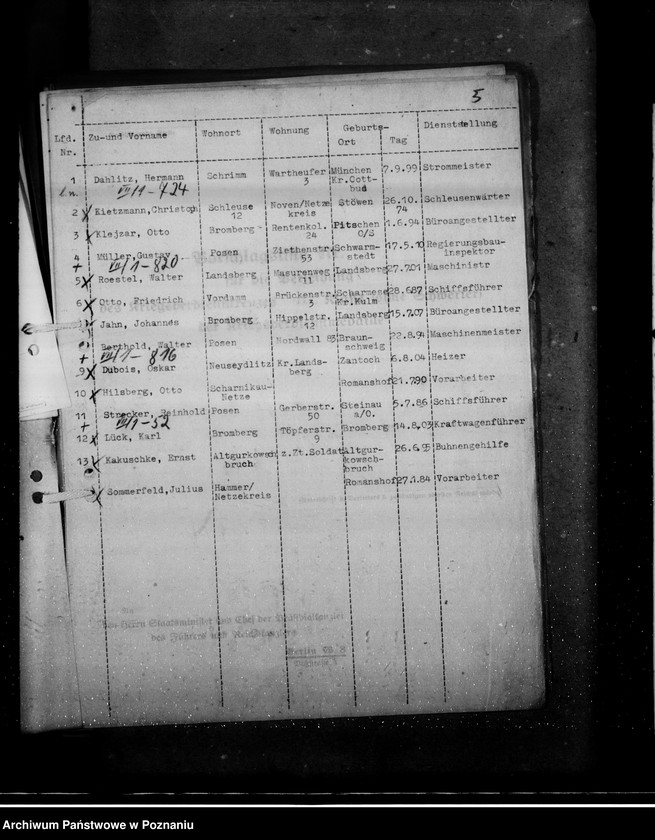 5
Lfd. Nr. Zu-und Vorname Wohnort Wohnung Geburts- Ort Tag Dienststellung
1 Dahlitz, Hermann Schrimm Wartheufer 3 München Kr.Cott-bus 7.9.99 Strommeister
VII/1-424
2 Kietzmann,Christoph Schleuse 12 Noven/Netze kreis Stöwen 26.10.74 Schleusenwärter
3 Klejzar, Otto Bromberg Rentenkol. 24 Pitschen O/S 1.6.94 Büroangestellter
4 Müller,Gustav Posen Ziethenstr. 53 Schwarm-stedt 17.5.10 Regierungsbau-inspektor
+ VII/1-820
5 Roestel, Walter Landsberg Masurenweg 11 Landsberg 27.7.01 Maschinistr
6 Otto, Friedrich Vordamm Brückenstr. 3 Scharmese Kr.Kulm 28.6.87 Schiffsführer
Jahn, Johannes Bromberg Hippelstr. 12 Landsberg 15.7.07 Büroangestellter
Berthold, Walter Posen Nordwall 83 Braun-schweig 22.8.94 Maschinenmeister
+ VII/1-816
9 Dubois, Oskar Neuseydlitz Kr.Lands-berg Zantoch 6.8.04 Heizer
10 Hilsberg, Otto Scharnikau-Netze Romanshof 21.7.90 Vorarbeiter
11 Strecker, Reinhold Posen Gerberstr. 50 Steinau a/O. 5.7.86 Schiffsführer
+ VII/1-52
12 Lück, Karl Bromberg Töpferstr. 9 Bromberg 14.8.03 Kraftwagenführer
13 Kakuschke, Ernst Altgurkowsch bruch z.Zt.Soldat Altgur-kowsch-bruch 26.6.95 Buhnengehilfe
Sommerfeld,Julius Hammer/Netzekreis Romanshof 27.1.84 Vorarbeiter
Herrn Staatsminister und Chef der Präsidialkanzlei
des Führers und Reichskanzlers
Berlin W 8
Archiwum Państwowe w Poznaniu